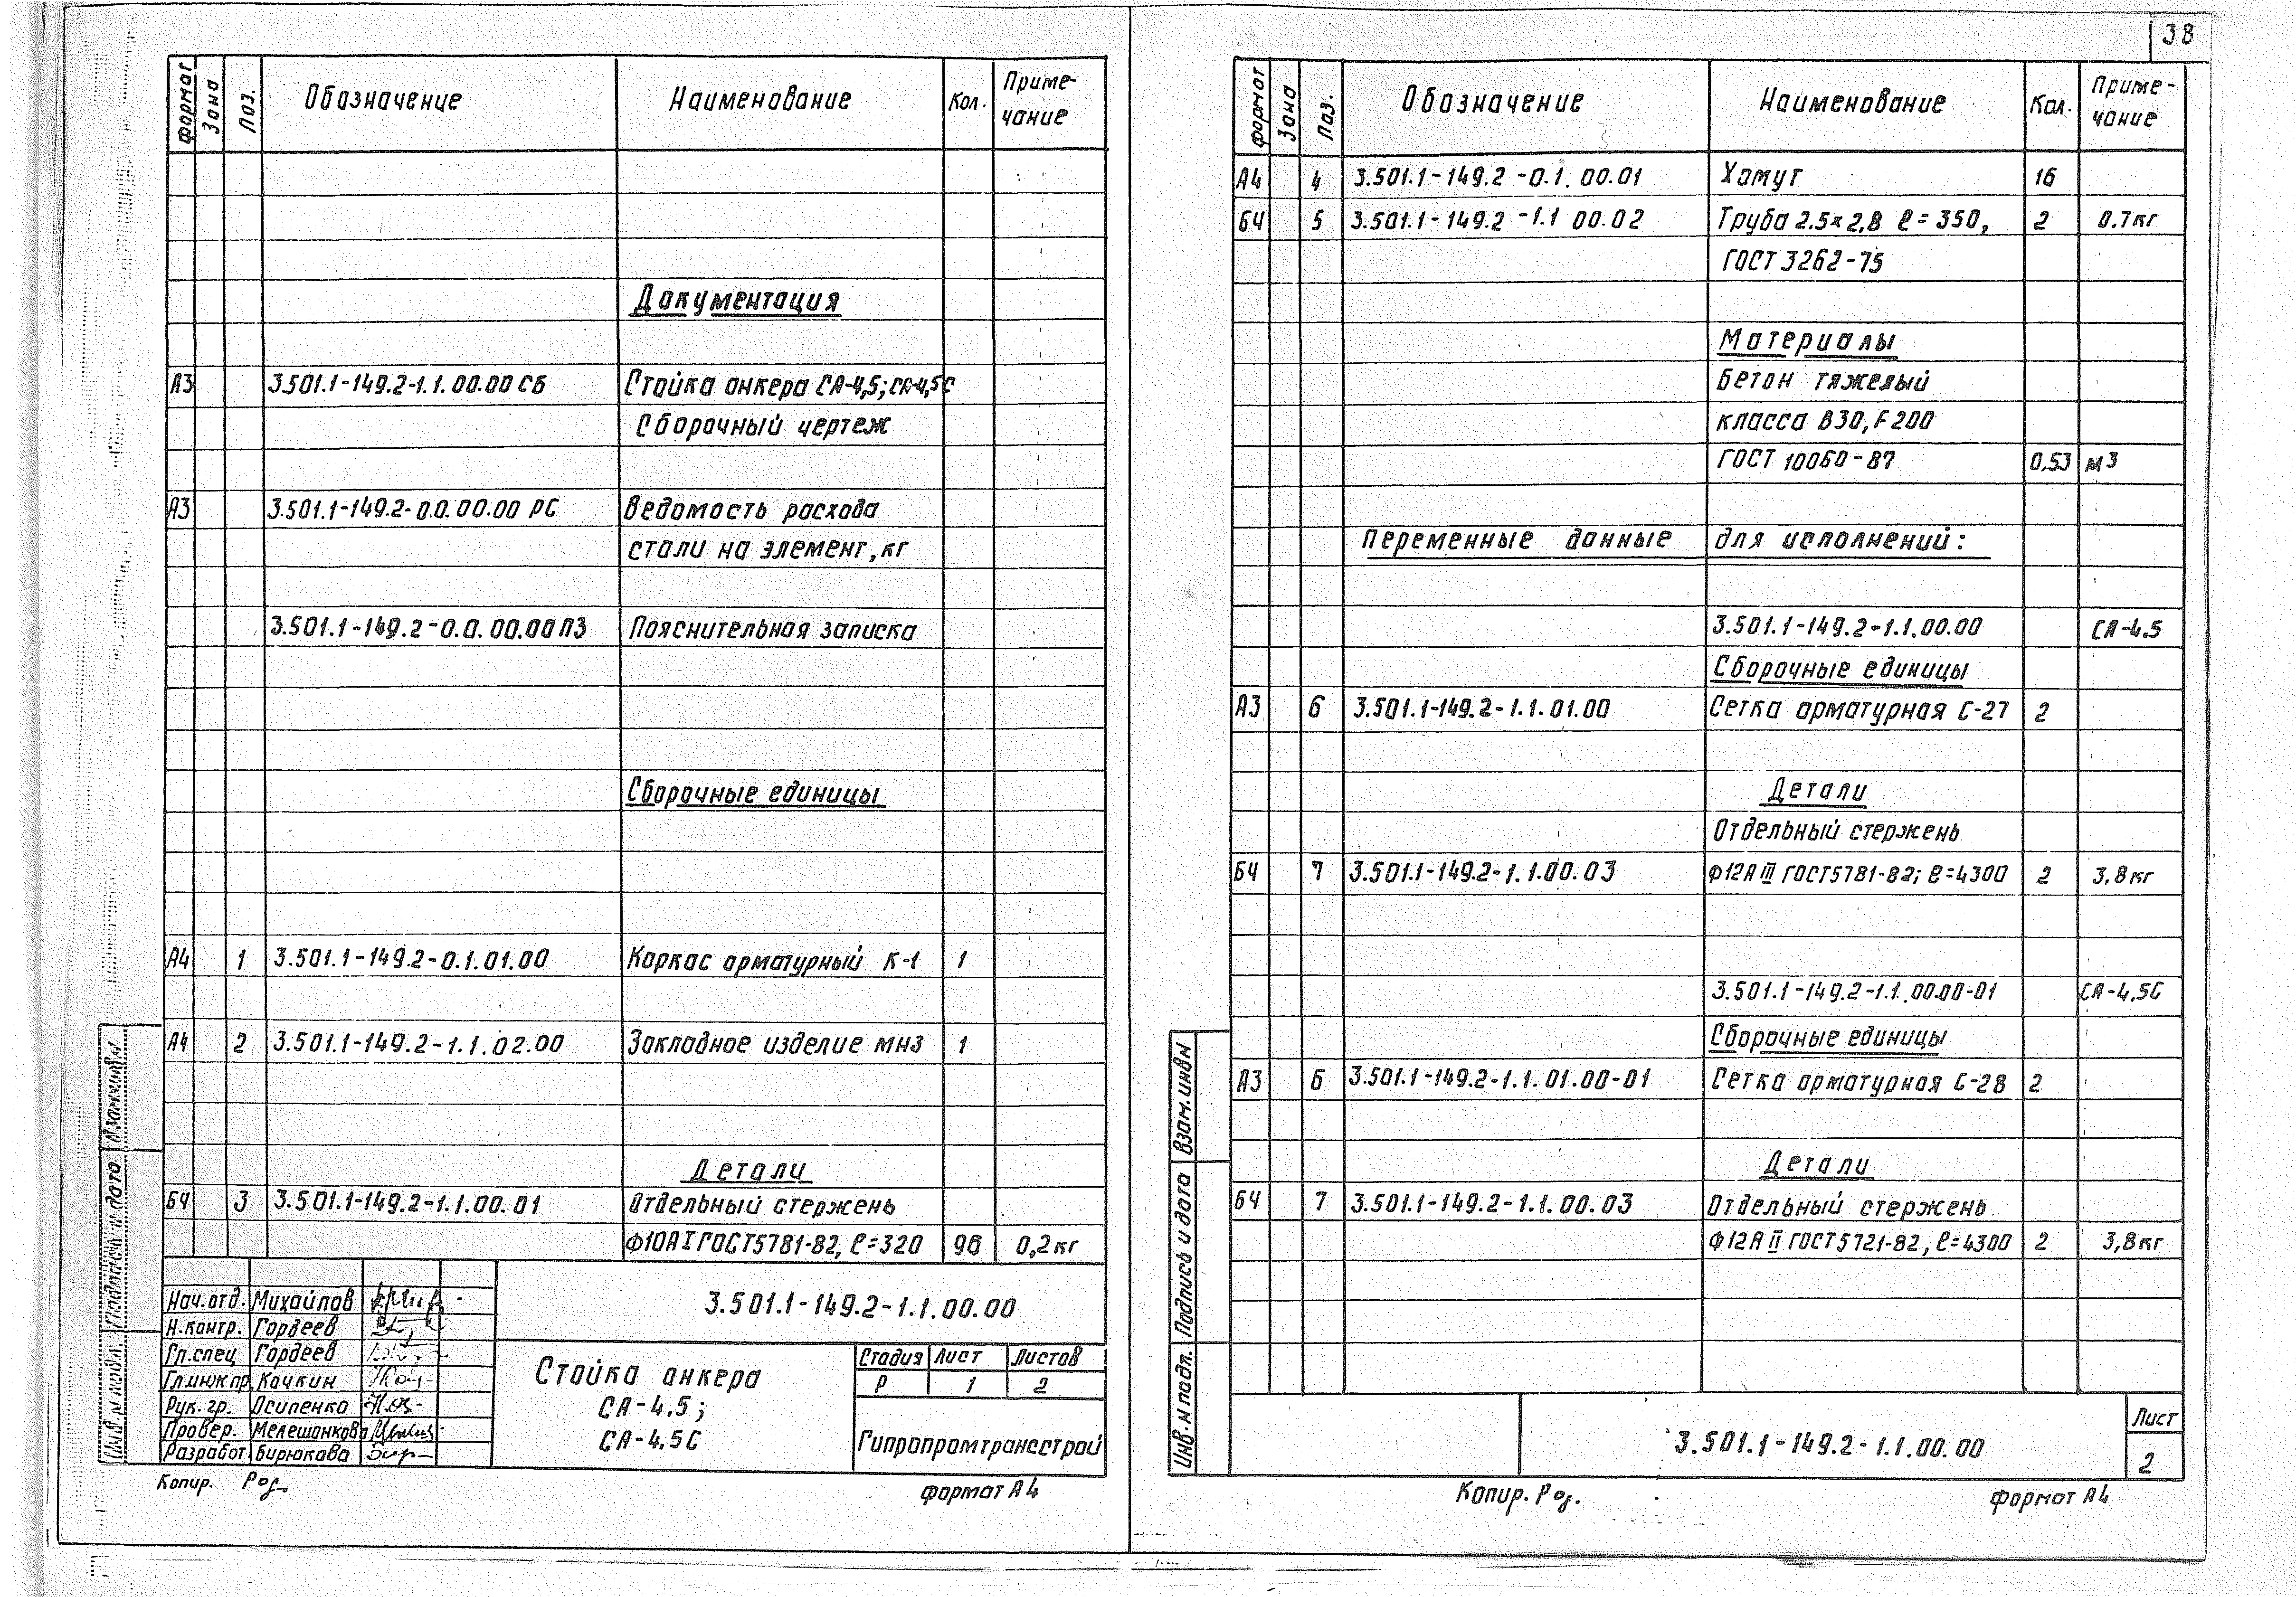 38
Формат Зона Поз. Обозначение Наименование Кол. Приме-
чание
Документация
А3 3.501.1-149.2-1.1.00.00 СБ Стойка анкера СА-4,5; СА-4,5С
Сборочный чертеж
А3 3.501.1-149.2-0.0.00.00 РС Ведомость расхода
стали на элемент, кг
3.501.1-149.2-0.0.00.00 ПЗ Пояснительная записка
Сборочные единицы
А4 1 3.501.1-149.2-0.1.01.00 Каркас арматурный К-1 1
А4 2 3.501.1-149.2-1.1.02.00 Закладное изделие МН3 1
Детали
БЧ 3 3.501.1-149.2-1.1.00.01 Отдельный стержень
Ф10АI ГОСТ5781-82, ℓ=320 96 0,2кг
3.501.1-149.2-1.1.00.00
Нач.отд. Михайлов
Н.контр. Гордеев
Гл.спец Гордеев
Гл.инж пр. Качкин
Рук. гр. Осипенко
Провер. Мелешанкова
Разработ. Бирюкова
Стойка анкера
СА-4.5;
СА-4.5С
Стадия Лист Листов
Р 1 2
Гипропромтрансстрой
Инв.№ подл. Подпись и дата Взам.инв№
Копир.
Формат А4
Формат Зона Поз. Обозначение Наименование Кол. Приме-
чание
А4 4 3.501.1-149.2-0.1.00.01 Хомут 16
БЧ 5 3.501.1-149.2-1.1 00.02 Труба 2.5×2,8 ℓ=350, 2 0.7кг
ГОСТ 3262-75
Материалы
Бетон тяжелый
класса В30, F200
ГОСТ 10060-87 0,53 м3
Переменные данные для исполнений:
3.501.1-149.2-1.1.00.00 СА-4.5
Сборочные единицы
А3 6 3.501.1-149.2-1.1.01.00 Сетка арматурная С-27 2
Детали
Отдельный стержень
БЧ 7 3.501.1-149.2-1.1.00.03 Ф12АIII ГОСТ5781-82; ℓ=4300 2 3,8кг
3.501.1-149.2-1.1.00.00-01 СА-4,5С
Сборочные единицы
А3 6 3.501.1-149.2-1.1.01.00-01 Сетка арматурная С-28 2
Детали
БЧ 7 3.501.1-149.2-1.1.00.03 Отдельный стержень
Ф12АII ГОСТ5721-82, ℓ=4300 2 3,8кг
Инв.№ подл. Подпись и дата Взам.инв№
3.501.1-149.2-1.1.00.00
Лист
2
Копир.
Формат А4